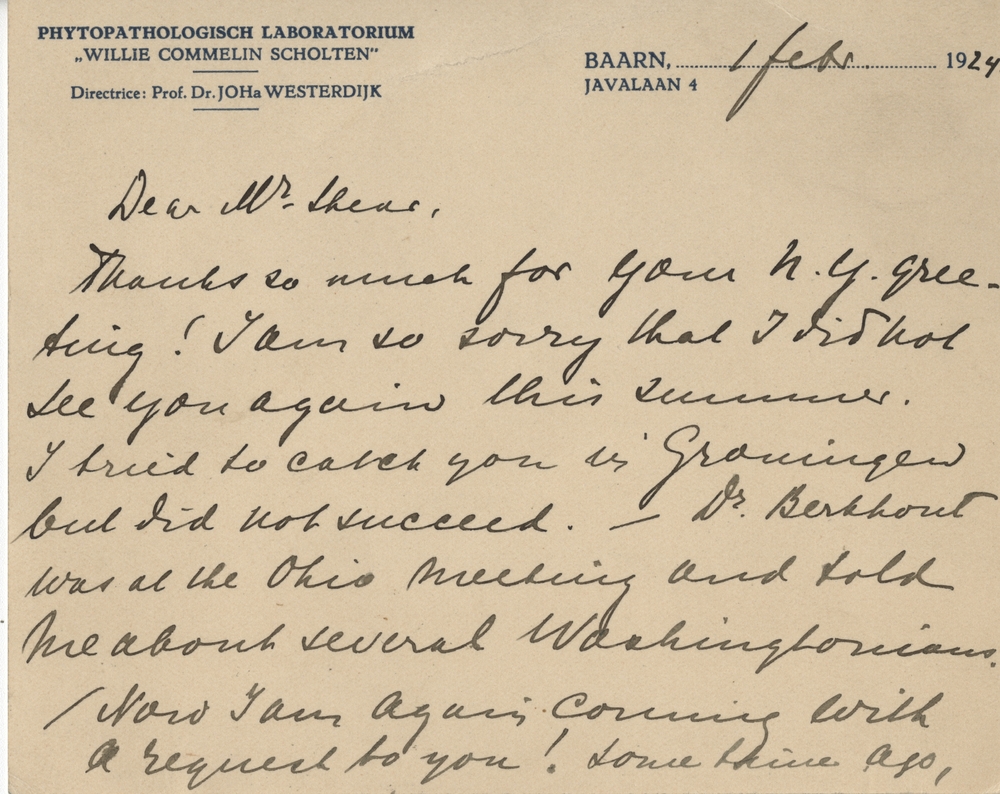 PHYTOPATHOLOGISCH LABORATORIUM
„WILLIE COMMELIN SCHOLTEN”
Directrice: Prof. Dr. JOHa WESTERDIJK
BAARN, 1 febr. 1924
JAVALAAN 4
Dear Mr. Shear,
Thanks so much for your N.Y. gree-
ting! I am so sorry that I did not
see you again this summer.
I tried to catch you in Groningen
but did not succeed. — Dr. Berkhout
was at the Ohio meeting and told
me about several Washingtonians.
/ Now I am again coming with
a request to you! Some thime ago,